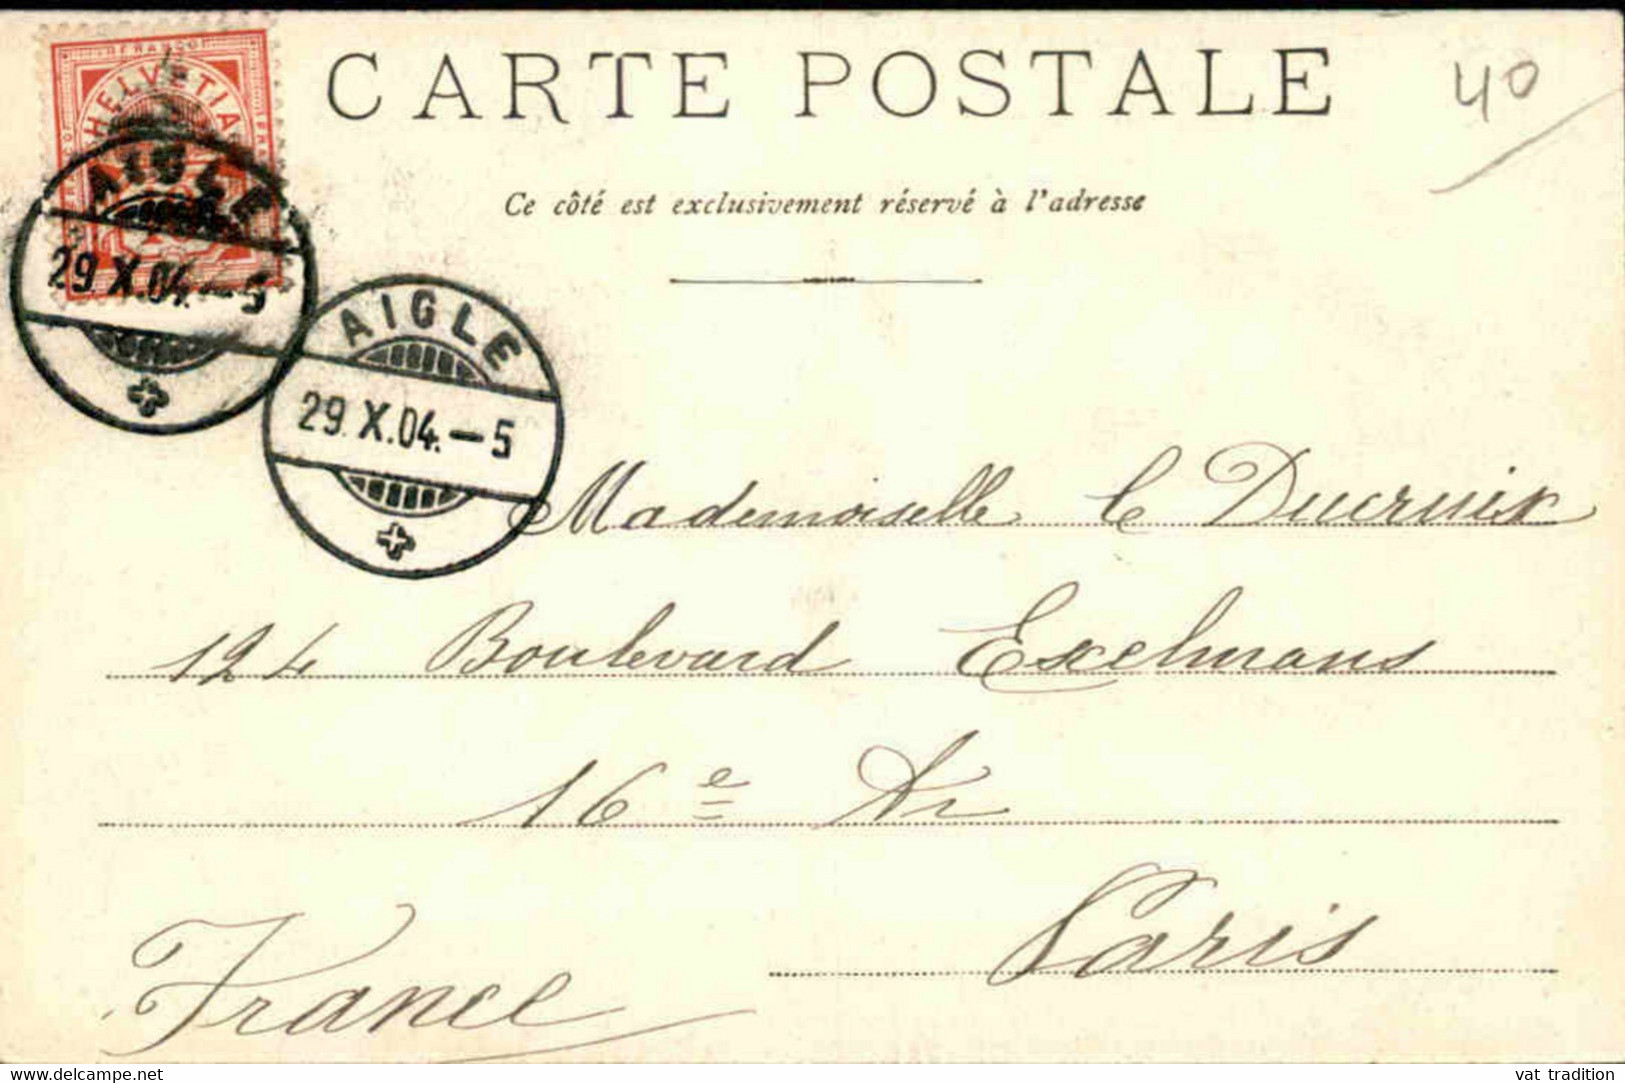 CARTE POSTALE
40
Ce côté est exclusivement réservé à l'adresse
FRANCO
HELVETIA
AIGLE
29 X.04.–5
AIGLE
29.X.04.–5
Mademoiselle C Ducruix
124 Boulevard Exelmans
16e Ar
Paris
France
www.delcampe.net
vat tradition